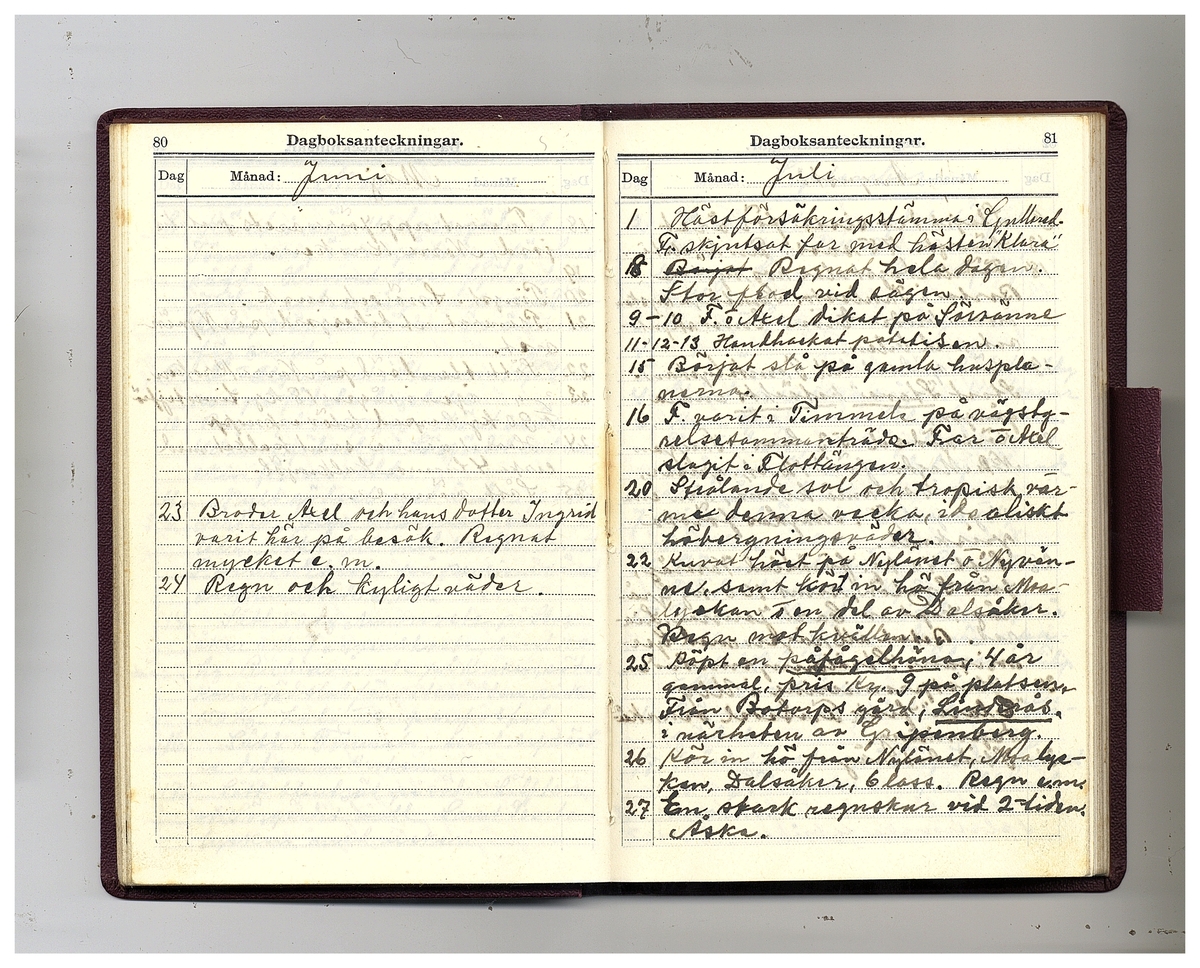 80
Dagboksanteckningar.
Dag
Månad: Juni
23 Broder Axel och hans dotter Ingrid
varit här på besök. Regnat
mycket e. m.
24 Regn och kyligt väder.
Dagboksanteckningar.
81
Dag
Månad: Juli
1 Hästförsäkringsstämma i Gullered.
F. skjutsat far med hästen "Klara"
8 Börjat Regnat hela dagen.
Stor flod vid sågen.
9-10 F. o Axel dikat på
11-12-13 Handhackat potatisen.
15 Börjat slå på gamla huspla-
nerna.
16 F. varit i Timmele på vägsty-
relsesammanträde. Far o Axel
slagit i Flottängen.
20 Strålande sol och tropisk vär-
me denna vecka, idealiskt
höbergningsväder.
22 Kuvat höet på Nylänet o Nyvän-
ne, samt kört in hö från Moa-
lyckan o en del av Dalsåker.
Regn mot kvällen.
25 Köpt en påfågelhöna, 4 år
gammal, pris Kr. 9 på platsen.
Från Botorps gård, Linderås.
i närheten av Gripenberg.
26 Kör in hö från Nylänet, Moalyc-
kan, Dalsåker, 6 lass. Regn e.m.
27 En stark regnskur vid 2-tiden.
Åska.